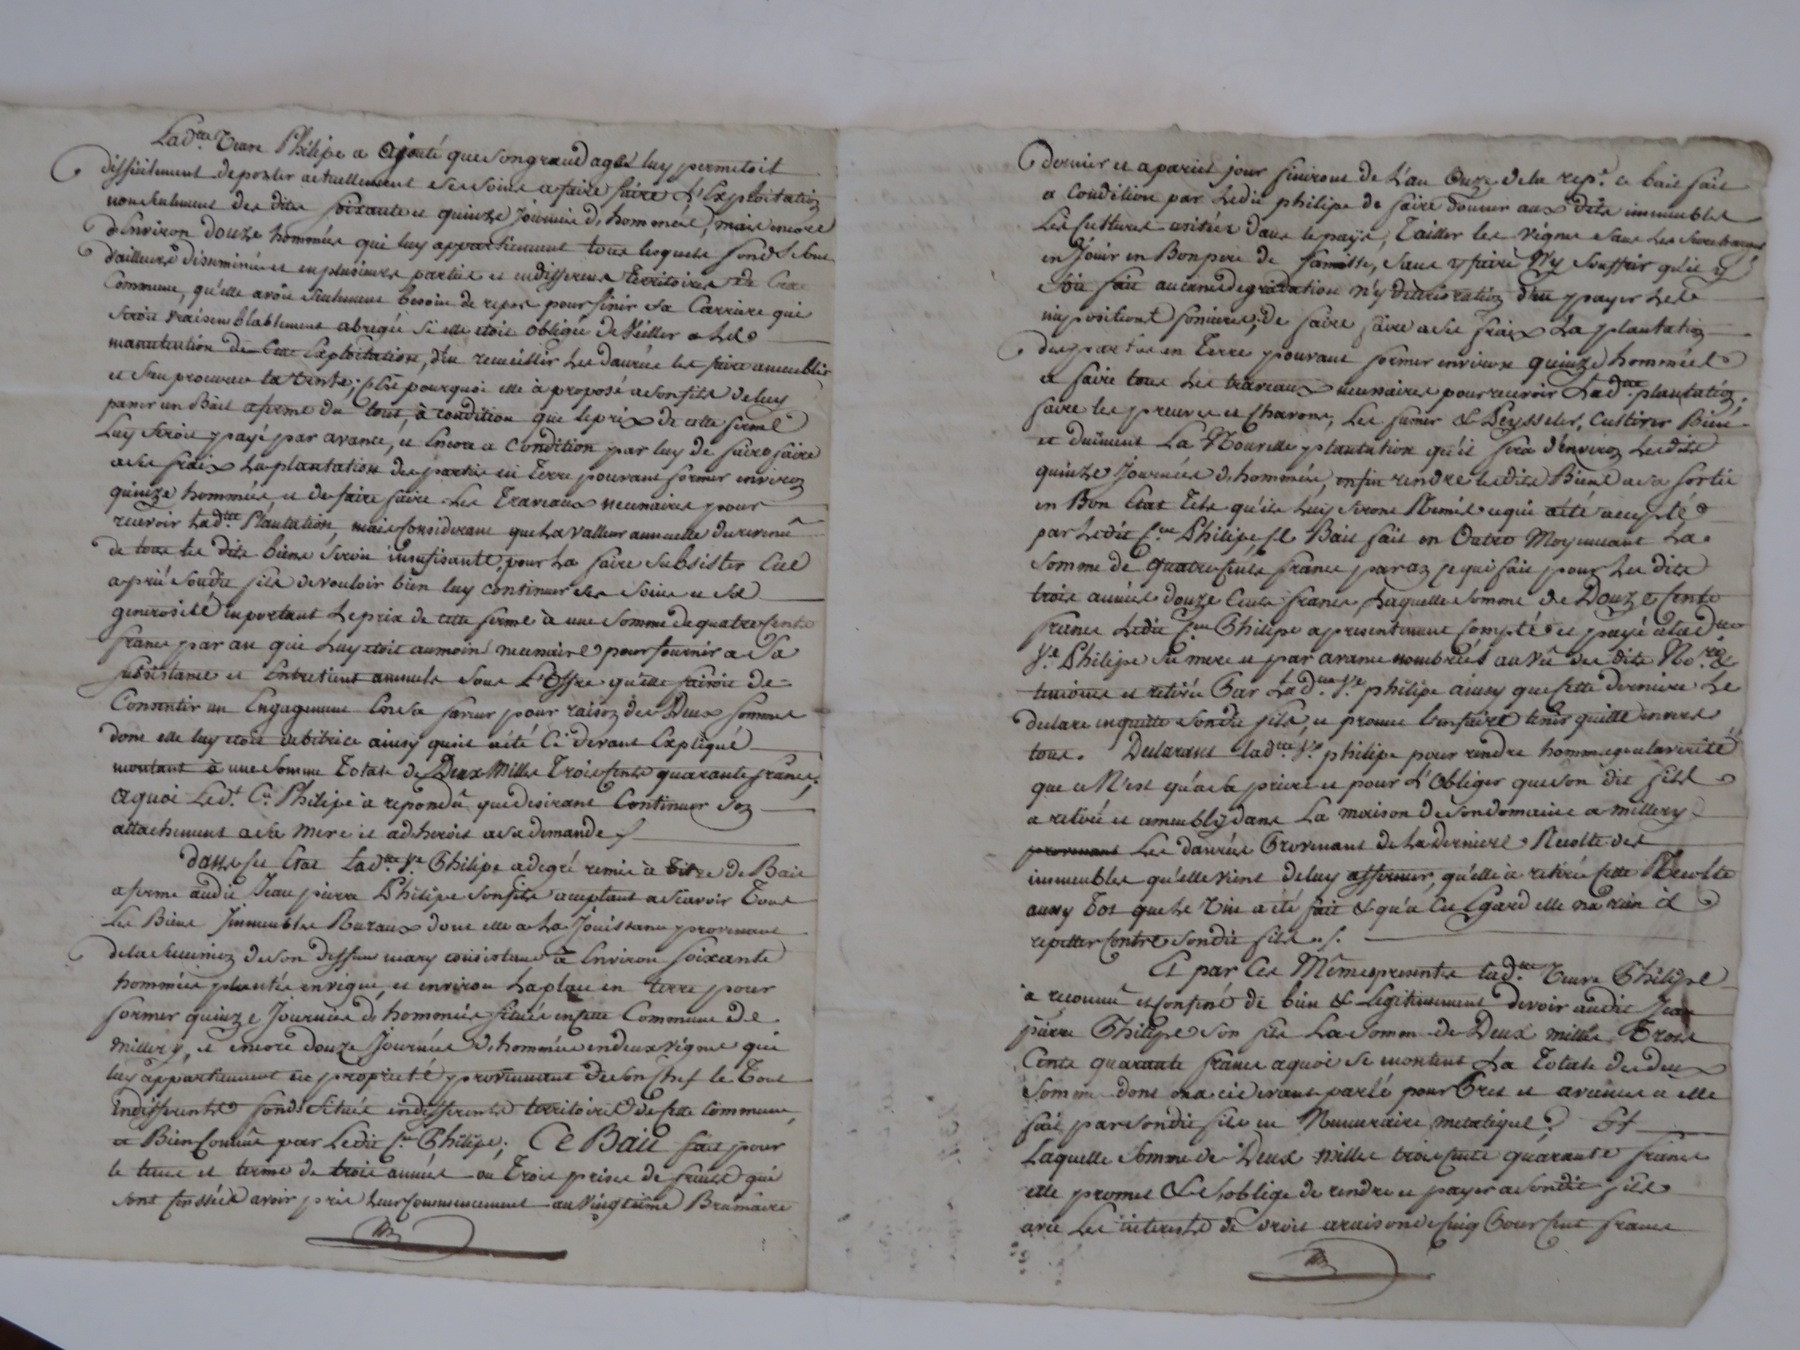 Ladtte Veuve Philipe a ajouté que son grand age luy permetoit
difficilement de porter actuellement ses soins a faire faire L'Exploitation
non seulement des dits soixante et quinze Journées d'hommées, mais encore
d'Environ douze hommées qui luy appartiennent tous lesquels fonds sont
d'ailleurs disseminés et en plusieurs parties et en differens Territoires de Cette
Commune, qu'elle avoit seulement besoin de repos pour finir sa Carriere qui
seroit vraisemblablement abregée si elle etoit obligée de Veiller a La
manutention de Cette Exploitation, d'en recueillir Les danrées les faire ameublir
et s'en procurer la vente; C'est pourquoi elle à proposé a son fils de luy
passer un Bail a ferme du tout, à condition que le prix de cette ferme
Luy seroit payé par avance, et Encore a Condition par luy de faire faire
a ses fraix La plantation des parties en Terre pouvant former environ
quinze hommées et de faire faire Les Travaux necessaires pour
recevoir Ladtte Plantation mais Considerant que La valleur annuelle du revenu
de tous les dits biens seroit insufisante pour La faire subsister Elle
a prié son dit fils de vouloir bien luy continuer ses soins et sa
generosité en portant Le prix de cette ferme à une Somme de quatre Cents
francs par an qui Luy etoit au moins necessaire pour fournir a Sa
subsistance et Entretient annuels sous L'Offre qu'elle faisoit de
Consentir un Engagement En sa faveur pour raison des Deux sommes
dont elle luy etoit debitrice ainsy qu'il a été Ci devant Expliqué
montant à une somme Totale de Deux Mille Trois Cents quarante francs;
a quoi Ledt Cn Philipe à repondu que desirant Continuer Son
attachement a sa Mere il adheroit a sa demande ./.
Dans Cet Etat Ladtte Ve Philipe a de gré remis à titre de Bail
a ferme au dit Jean pierre Philipe son fils acceptant a scavoir Tous
Les Biens Immeubles Ruraux dont elle a La Jouissance provenant
de la succession de son deffunt mary consistant à Environ soixante
hommées plantés en vigne, et environ La place en terre pour
former quinze Journées d'hommées situés en Cette Commune de
Millery, et encore douze Journées d'hommées en deux vignes qui
luy appartiennent en proprieté provennant de Son Chef Le Tout
En differents fonds Situés en differents territoires de Cette Commune,
a Bien Connus par Ledit Cn Philipe; Ce Bail fait pour
le tems et terme de trois années ou Trois prises de fruits qui
sont Censées avoir pris Leur Commencement au Vingtieme Brumaire
dernier et a pareil jour finiront de L'an Onze de la repe. ce bail fait
a Condition par Ledit philipe de faire donner aux dits immeubles
Les Cultures usitées dans le pays, Tailler les vignes sans Les surcharger
en Jouir en Bon pere de famille, sans y faire N'y Souffrir qu'il y
soit fait aucune degradation n'y deterioration d'en payer Les
impositions foncieres; de faire faire a ses fraix La plantation
des parties en Terre pouvant former environ quinze hommées
a faire tous Les travaux necessaires pour recevoir Ladtte plantation,
faire les preuves et Chavons, Les fumer & Peysseler, Cultiver Bien
et duement La Nouvelle plantation qu'il fera d'environ Les dits
quinze Journées d'hommées, enfin rendre les dits Biens a sa sortie
en Bon Etat Tels qu'ils Luy seront Remis ce qui a été accepté
par Ledit Cen Philipe ce Bail fait en Outre Moyennant La
somme de quatre Cents francs par an ce qui fait pour Les dits
trois années douze Cents francs Laquelle Somme de Douze Cents
francs Ledit Cen Philipe a presentement Compté et payé a Ladtte
Ve Philipe Sa mere et par avance nombrées au Vû des dits Nore &
temoins et retirée Par Ladtte Ve philipe ainsy que Cette derniere Le
declare en quitte son dit fils, et promet L'en faire tenir quitte envers
tous. Declarant Ladtte Ve philipe pour rendre hommage a la verité
que ce N'est qu'a sa priere et pour L'Obliger que son dit fils
a retiré et ameubly dans La maison de son domaine a Millery
provenant Les danrées Provenant de La derniere Recolte des
immeubles qu'elle vient de luy affermer, qu'elle a retirée Cette Recolte
aussy Tot que Le Vin a été fait & qu'a Cet Egard elle n'a rien à
repetter Contre son dit fils ./.
Et par Ces Mêmes presentes Ladtte Veuve Philipe
a reconnu et confessé de bien & Legitimement devoir au dit Jean
pierre Philipe son fils La somme de Deux mille Trois
Cents quarante francs a quoi se montent La Totale des deux
Sommes dont on a ci devant parlé pour Prets et avances a elle
fait par son dit fils en Numeraire metalique; Et
Laquelle Somme de Deux mille trois Cents quarante francs
elle promet & s'oblige de rendre et payer a son dit fils
avec Les interets de droit a raison de Cinq Pour Cent francs